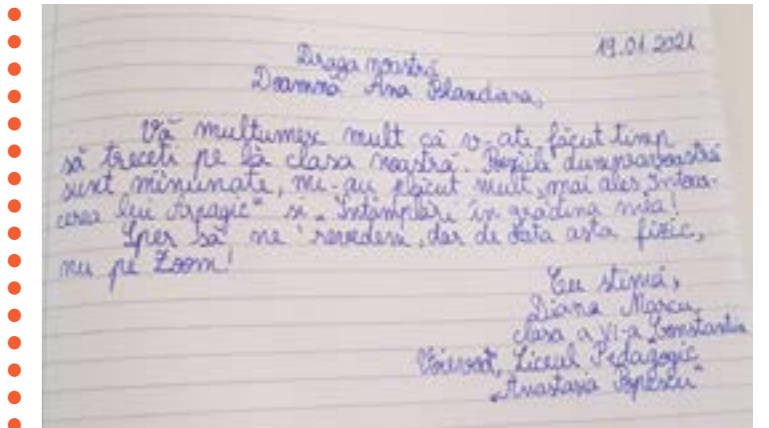 19.01.2021
Draga noastră
Doamnă Ana Blandiana,
Vă multumesc mult că v-ati făcut timp
să treceti pe la clasa noastră. Poeziile dumneavoastră
sunt minunate, mi-au plăcut mult, mai ales „Întoar-
cerea lui Arpagic" si „Întâmplări în grădina mea!
Sper să ne revedem, dar de data asta fizic,
nu pe Zoom!
Cu stimă,
Diana Marcu
clasa a VI-a „Constantin
Voievod, Liceul Pedagogic
„Anastasia Popescu"